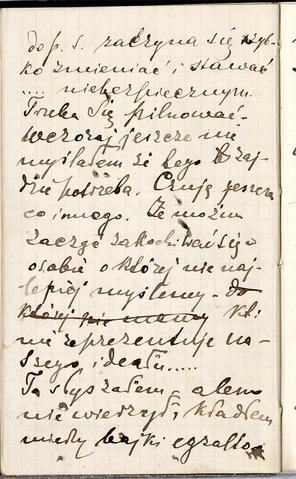 do p. S. zaczyna się szyb-
ko zmieniać i stawać
.... niebezpiecznym.
Trzeba się pilnować.
Wczoraj jeszcze nie
myślałem że tego zaj-
dzie potrzeba. Czuję jeszcze
co innego. Że można
zacząć zakochiwać się w
osobie o której nie naj-
lepiej myślemy - do
której nie mamy kt.
nie reprezentuje na-
szego ideału.....
To słyszałem - alem
nie wierzył, kładłem
między bajki